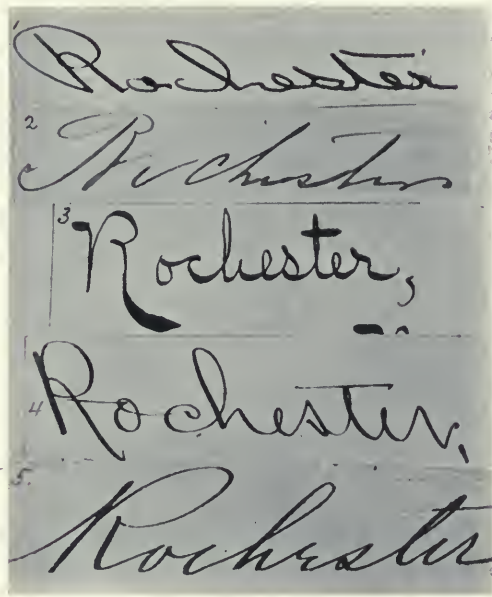 1 Rochester
2 Rochester
3 Rochester,
4 Rochester,
5. Rochester